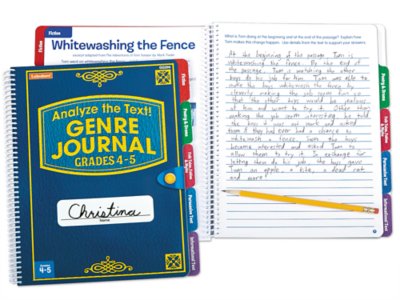 Lakeshore
Analyze the Text!
GENRE
JOURNAL
GRADES 4-5
Christina
Name
Grades
4-5
Fiction
Fiction
Whitewashing the Fence
excerpt adapted from The Adventures of Tom Sawyer by Mark Twain
What is Tom doing at the beginning and at the end of the passage? Explain how
Tom makes this change happen. Use details from the text to support your answers.
At the beginning of the passage, Tom is
whitewashing the fence. By the end of
the passage, Tom is watching the other
boys do his job for him. Tom was able to
make the boys whitewash the fence by
cleverly making the job seem fun so
that the other boys would be jealous
of him and want to try it.
making the job seem interesting, he told
the boys it was not work and asked
them if they had ever had a chance to
whitewash a fence. Then the boys
became interested and asked Tom to
allow them to try it. In exchange for
letting them do his job, the boys gave
Tom an apple, a kite, a dead rat,
and more!
Poetry & Drama
Folk Tales, Fables
& Myths
Persuasive Text
Informational Text
Poetry & Drama
Folk Tales, Fables
& Myths
Persuasive Text
Informational Text